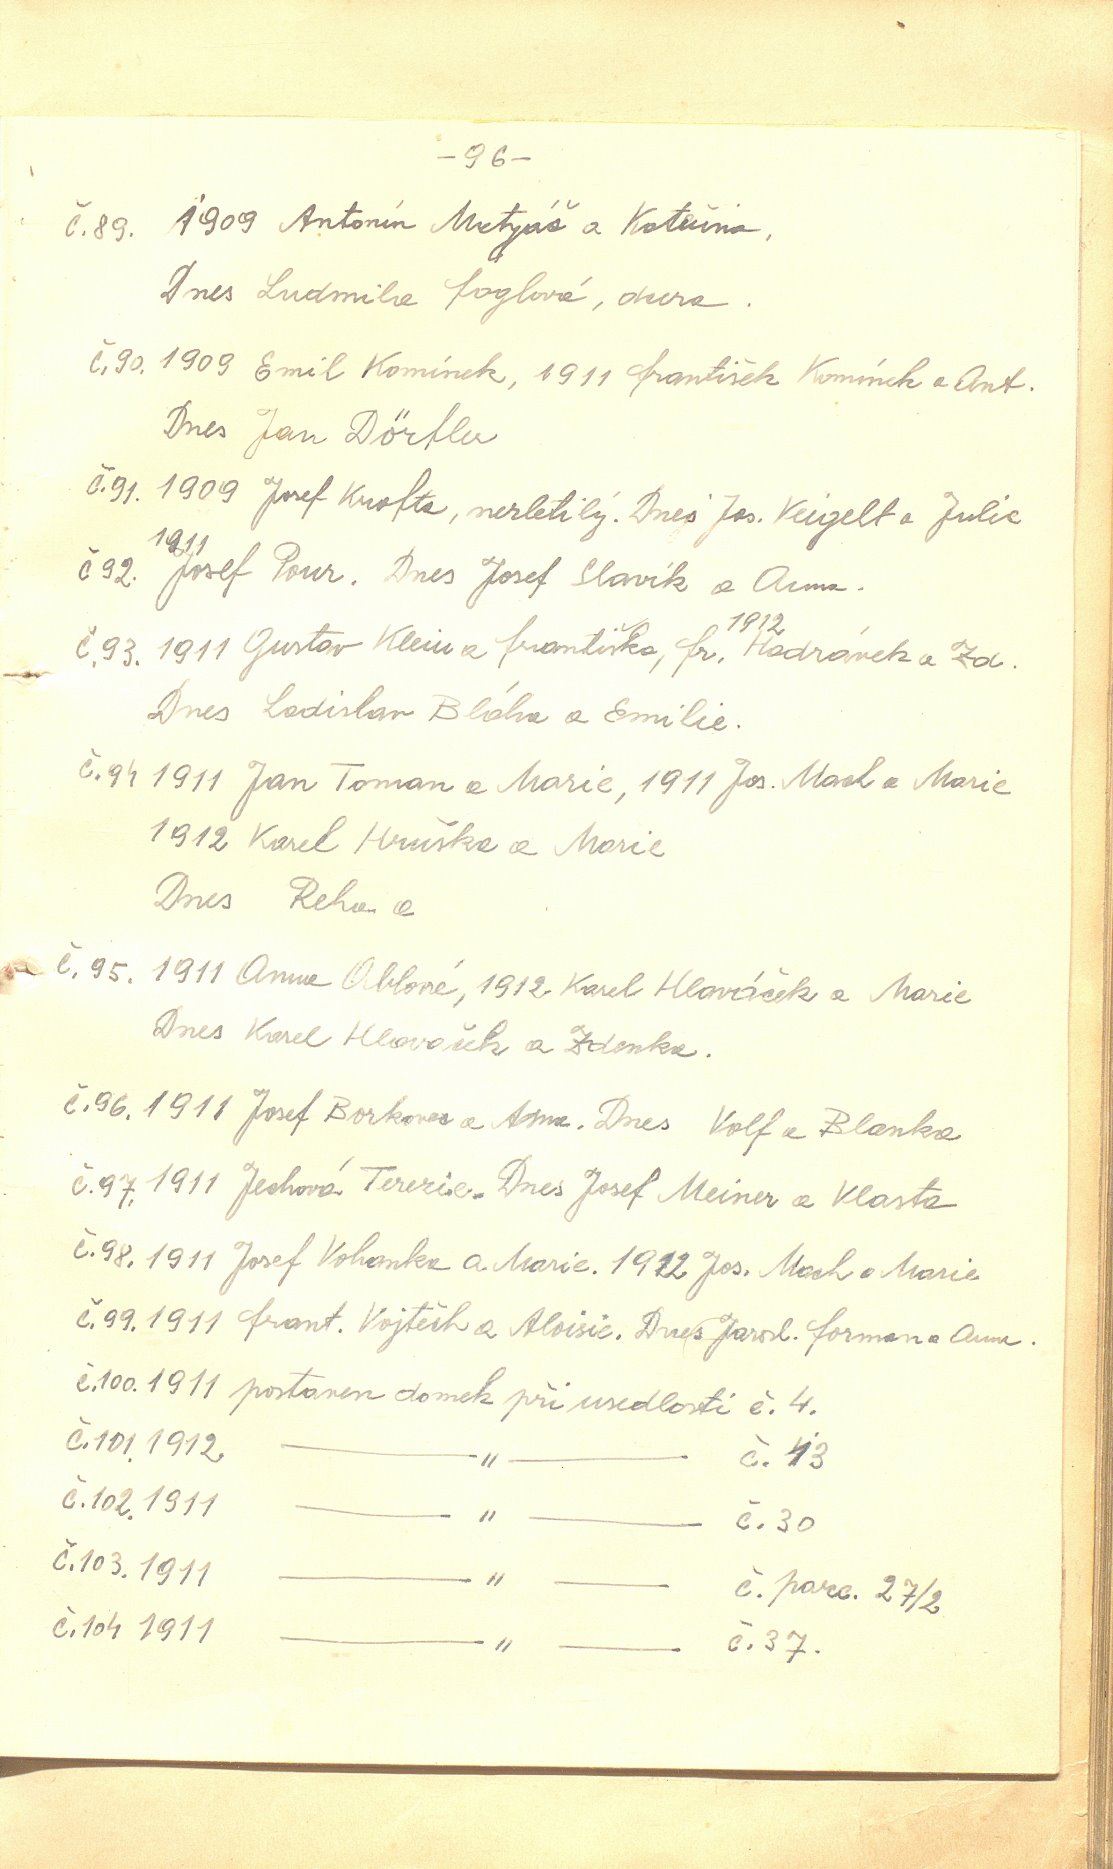 -96-
č.89. 1909 Antonín Matyáš a Kateřina,
Dnes Ludmila Foglová, dcera.
č.90. 1909 Emil Komínek, 1911 František Komínek a Ant.
Dnes Jan Dörfler
č.91. 1909 Josef Krofta, nezletilý. Dnes Jos. Veigelt a Julie
1911
č 92. Josef Pour. Dnes Josef Slavík a Anna.
1912
č.93. 1911 Gustav Klein a Františka, Fr. Hadrávek a Zd.
Dnes Ladislav Bláha a Emilie.
č.94 1911 Jan Toman a Marie, 1911 Jos. Mach a Marie
1912 Karel Hruška a Marie
Dnes Reha a
č.95. 1911 Anna Ablová, 1912 Karel Hlaváček a Marie
Dnes Karel Hlaváček a Zdenka.
č.96. 1911 Josef Borkovec a Anna. Dnes Volf a Blanka
č.97. 1911 Jechová Terezie. Dnes Josef Meiner a Vlasta
č.98. 1911 Josef Vohanka a Marie. 1912 Jos. Mach a Marie
č.99. 1911 Frant. Vojtěch a Aloisie. Dnes Jarosl. Forman a Anna.
č.100. 1911 postaven domek při usedlosti č. 4.
č.101. 1912. —— " —— č. 43
č.102. 1911 —— " —— č. 30
č.103. 1911 —— " —— č. parc. 27/2
č.104 1911 —— " —— č. 37.